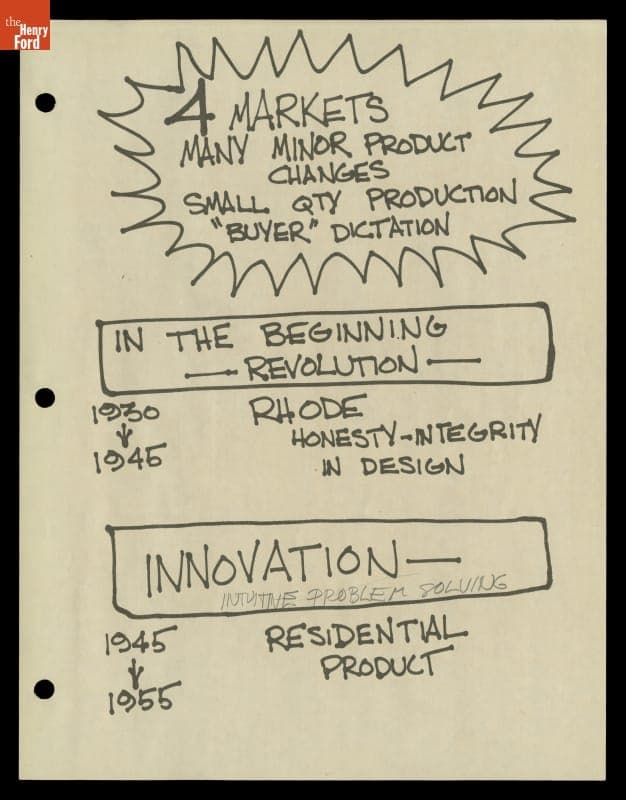 the
Henry
Ford
4 MARKETS
MANY MINOR PRODUCT
CHANGES
SMALL QTY PRODUCTION
"BUYER" DICTATION
IN THE BEGINNING
— REVOLUTION —
1930 RHODE
↓ HONESTY-INTEGRITY
1945 IN DESIGN
INNOVATION —
INTUITIVE PROBLEM SOLVING
1945 RESIDENTIAL
↓ PRODUCT
1955